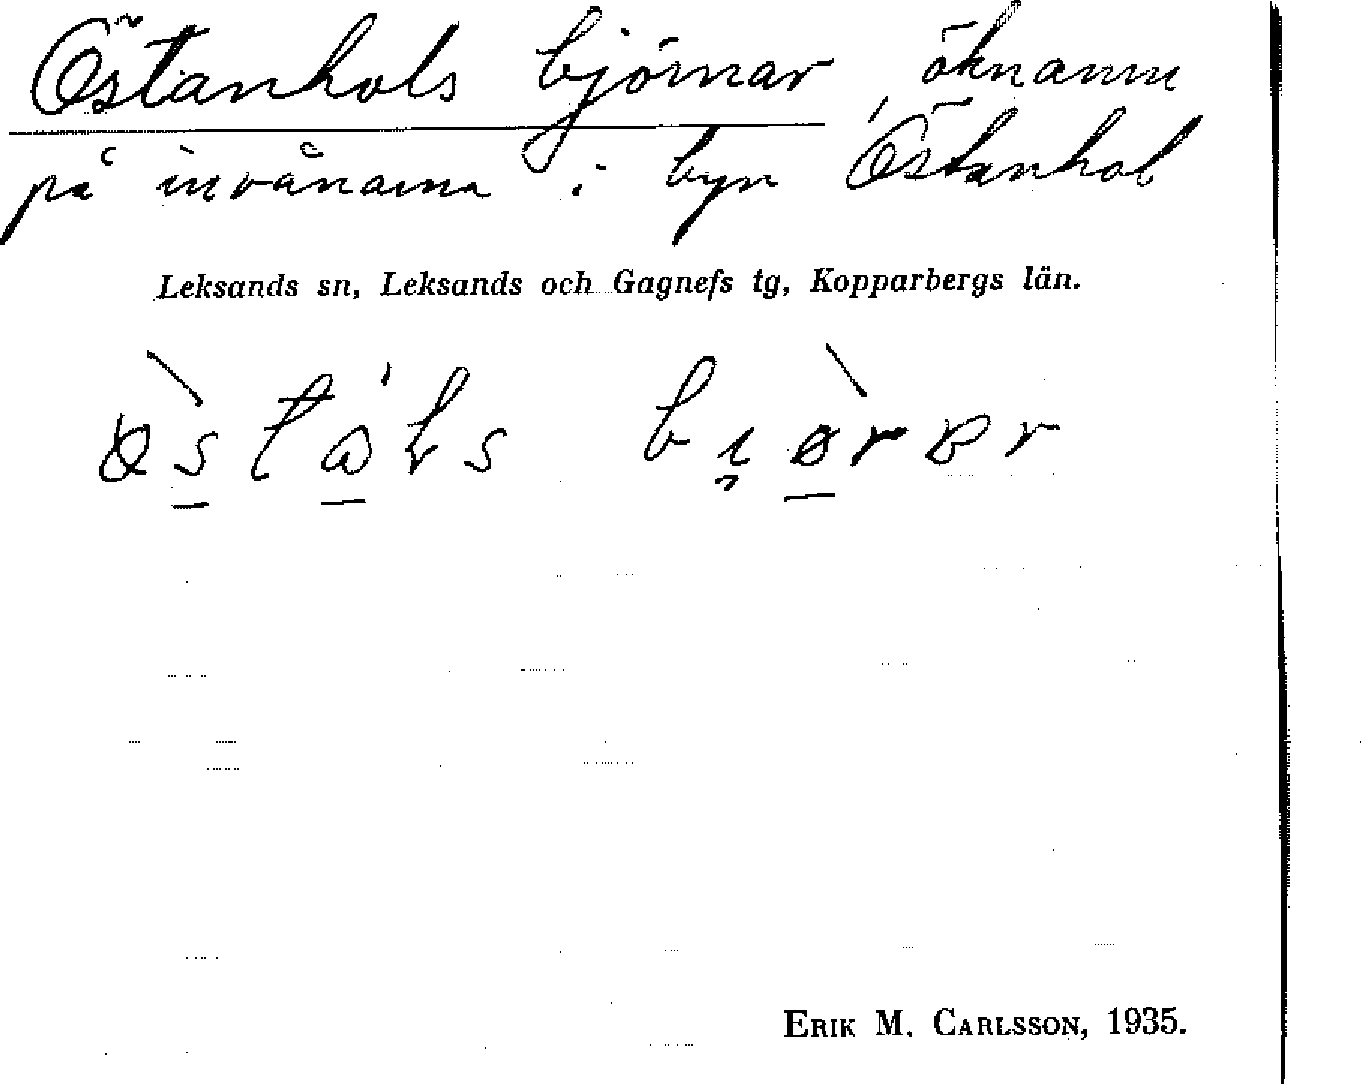 Östanhols björnar, öknamn
på invånarna i byn Östanhol
Leksands sn, Leksands och Gagnefs tg, Kopparbergs län.
ERIK M. CARLSSON, 1935.